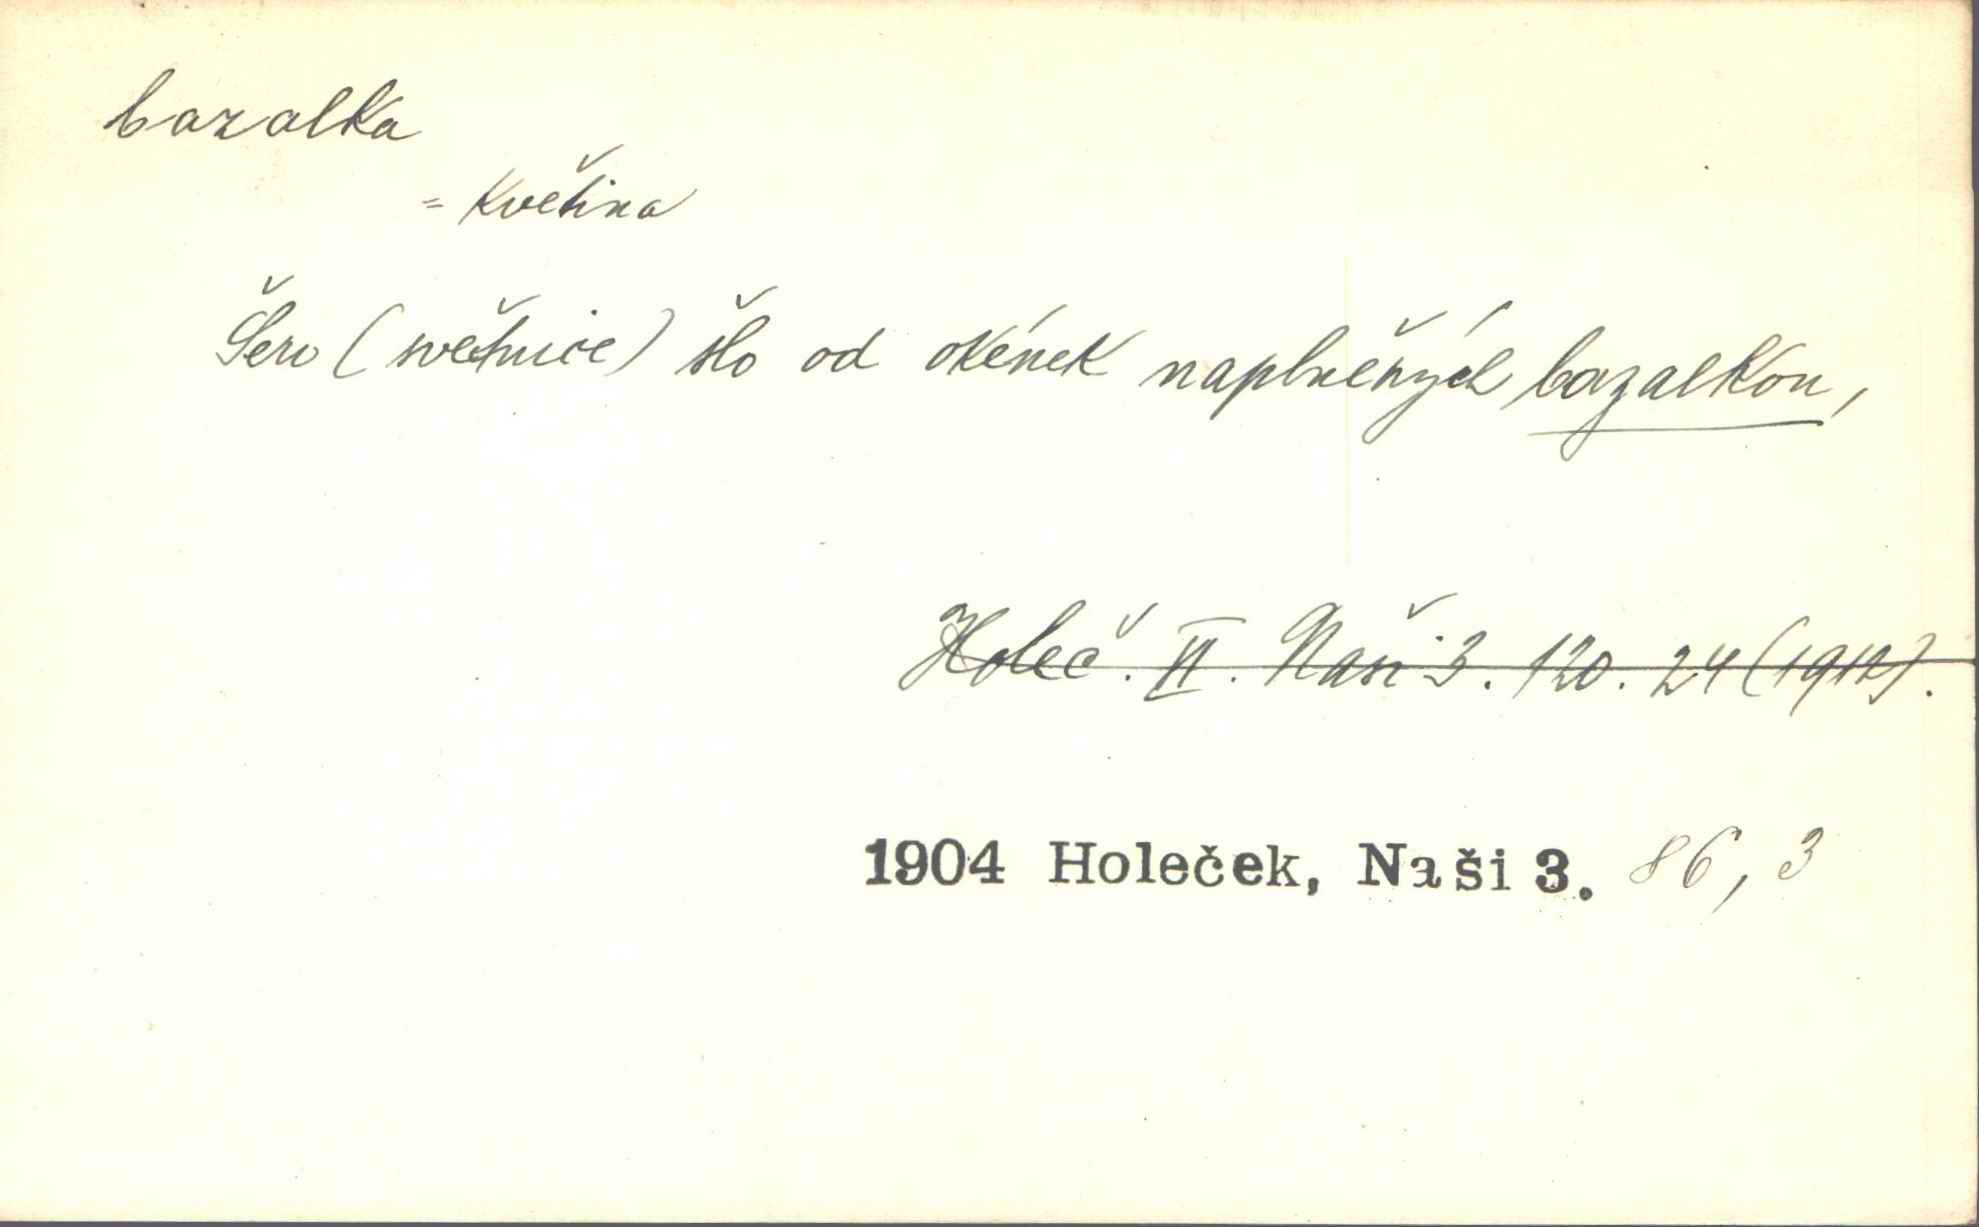 bazalka
= květina
Šero (světnice) šlo od okének naplněných bazalkou,
Holeč. II. Naši 3. 120. 24 (1912).
1904 Holeček, Naši 3. 86, 3